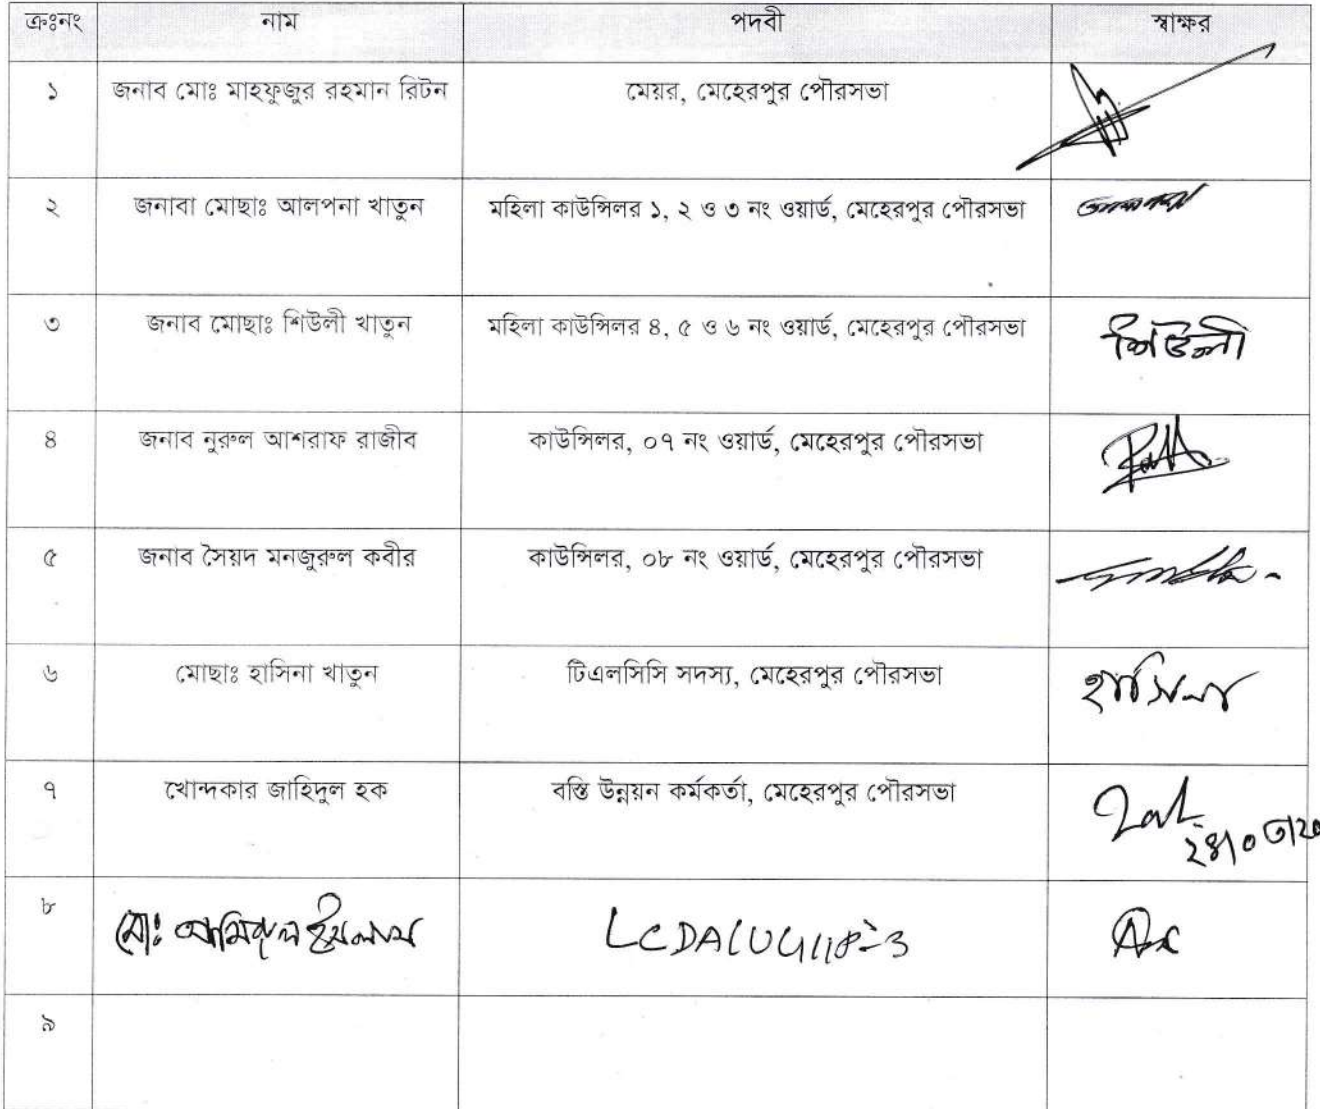 ক্রঃনং নাম পদবী স্বাক্ষর
১ জনাব মোঃ মাহফুজুর রহমান রিটন মেয়র, মেহেরপুর পৌরসভা
২ জনাবা মোছাঃ আলপনা খাতুন মহিলা কাউন্সিলর ১, ২ ও ৩ নং ওয়ার্ড, মেহেরপুর পৌরসভা
৩ জনাব মোছাঃ শিউলী খাতুন মহিলা কাউন্সিলর ৪, ৫ ও ৬ নং ওয়ার্ড, মেহেরপুর পৌরসভা শিউলী
৪ জনাব নুরুল আশরাফ রাজীব কাউন্সিলর, ০৭ নং ওয়ার্ড, মেহেরপুর পৌরসভা
৫ জনাব সৈয়দ মনজুরুল কবীর কাউন্সিলর, ০৮ নং ওয়ার্ড, মেহেরপুর পৌরসভা
৬ মোছাঃ হাসিনা খাতুন টিএলসিসি সদস্য, মেহেরপুর পৌরসভা হাসিনা
৭ খোন্দকার জাহিদুল হক বস্তি উন্নয়ন কর্মকর্তা, মেহেরপুর পৌরসভা
২৪/০৩/২০
৮ মোঃ ইসলাম
৯